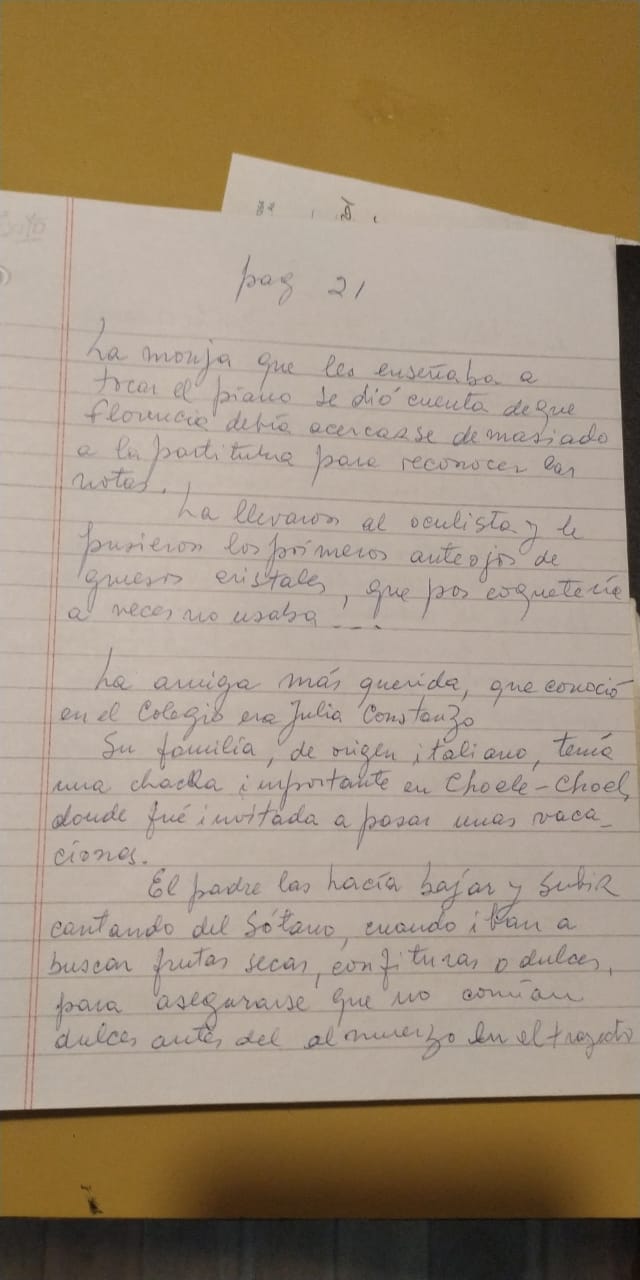 pag 21
La monja que les enseñaba a
tocar el piano se dió cuenta de que
Florencia debía acercarse demasiado
a la partitura para reconocer las
notas.
La llevaron al oculista y le
pusieron los primeros anteojos de
gruesos cristales, que por coquetería
a veces no usaba ....
La amiga más querida, que conoció
en el Colegio era Julia Constanzo
Su familia, de origen italiano, tenía
una chacra importante en Choele-Choel,
donde fué invitada a pasar unas vaca_
ciones.
El padre las hacía bajar y subir
cantando del sótano, cuando iban a
buscar frutas secas, confituras o dulces,
para asegurarse que no comían
dulces antes del almuerzo en el trayecto